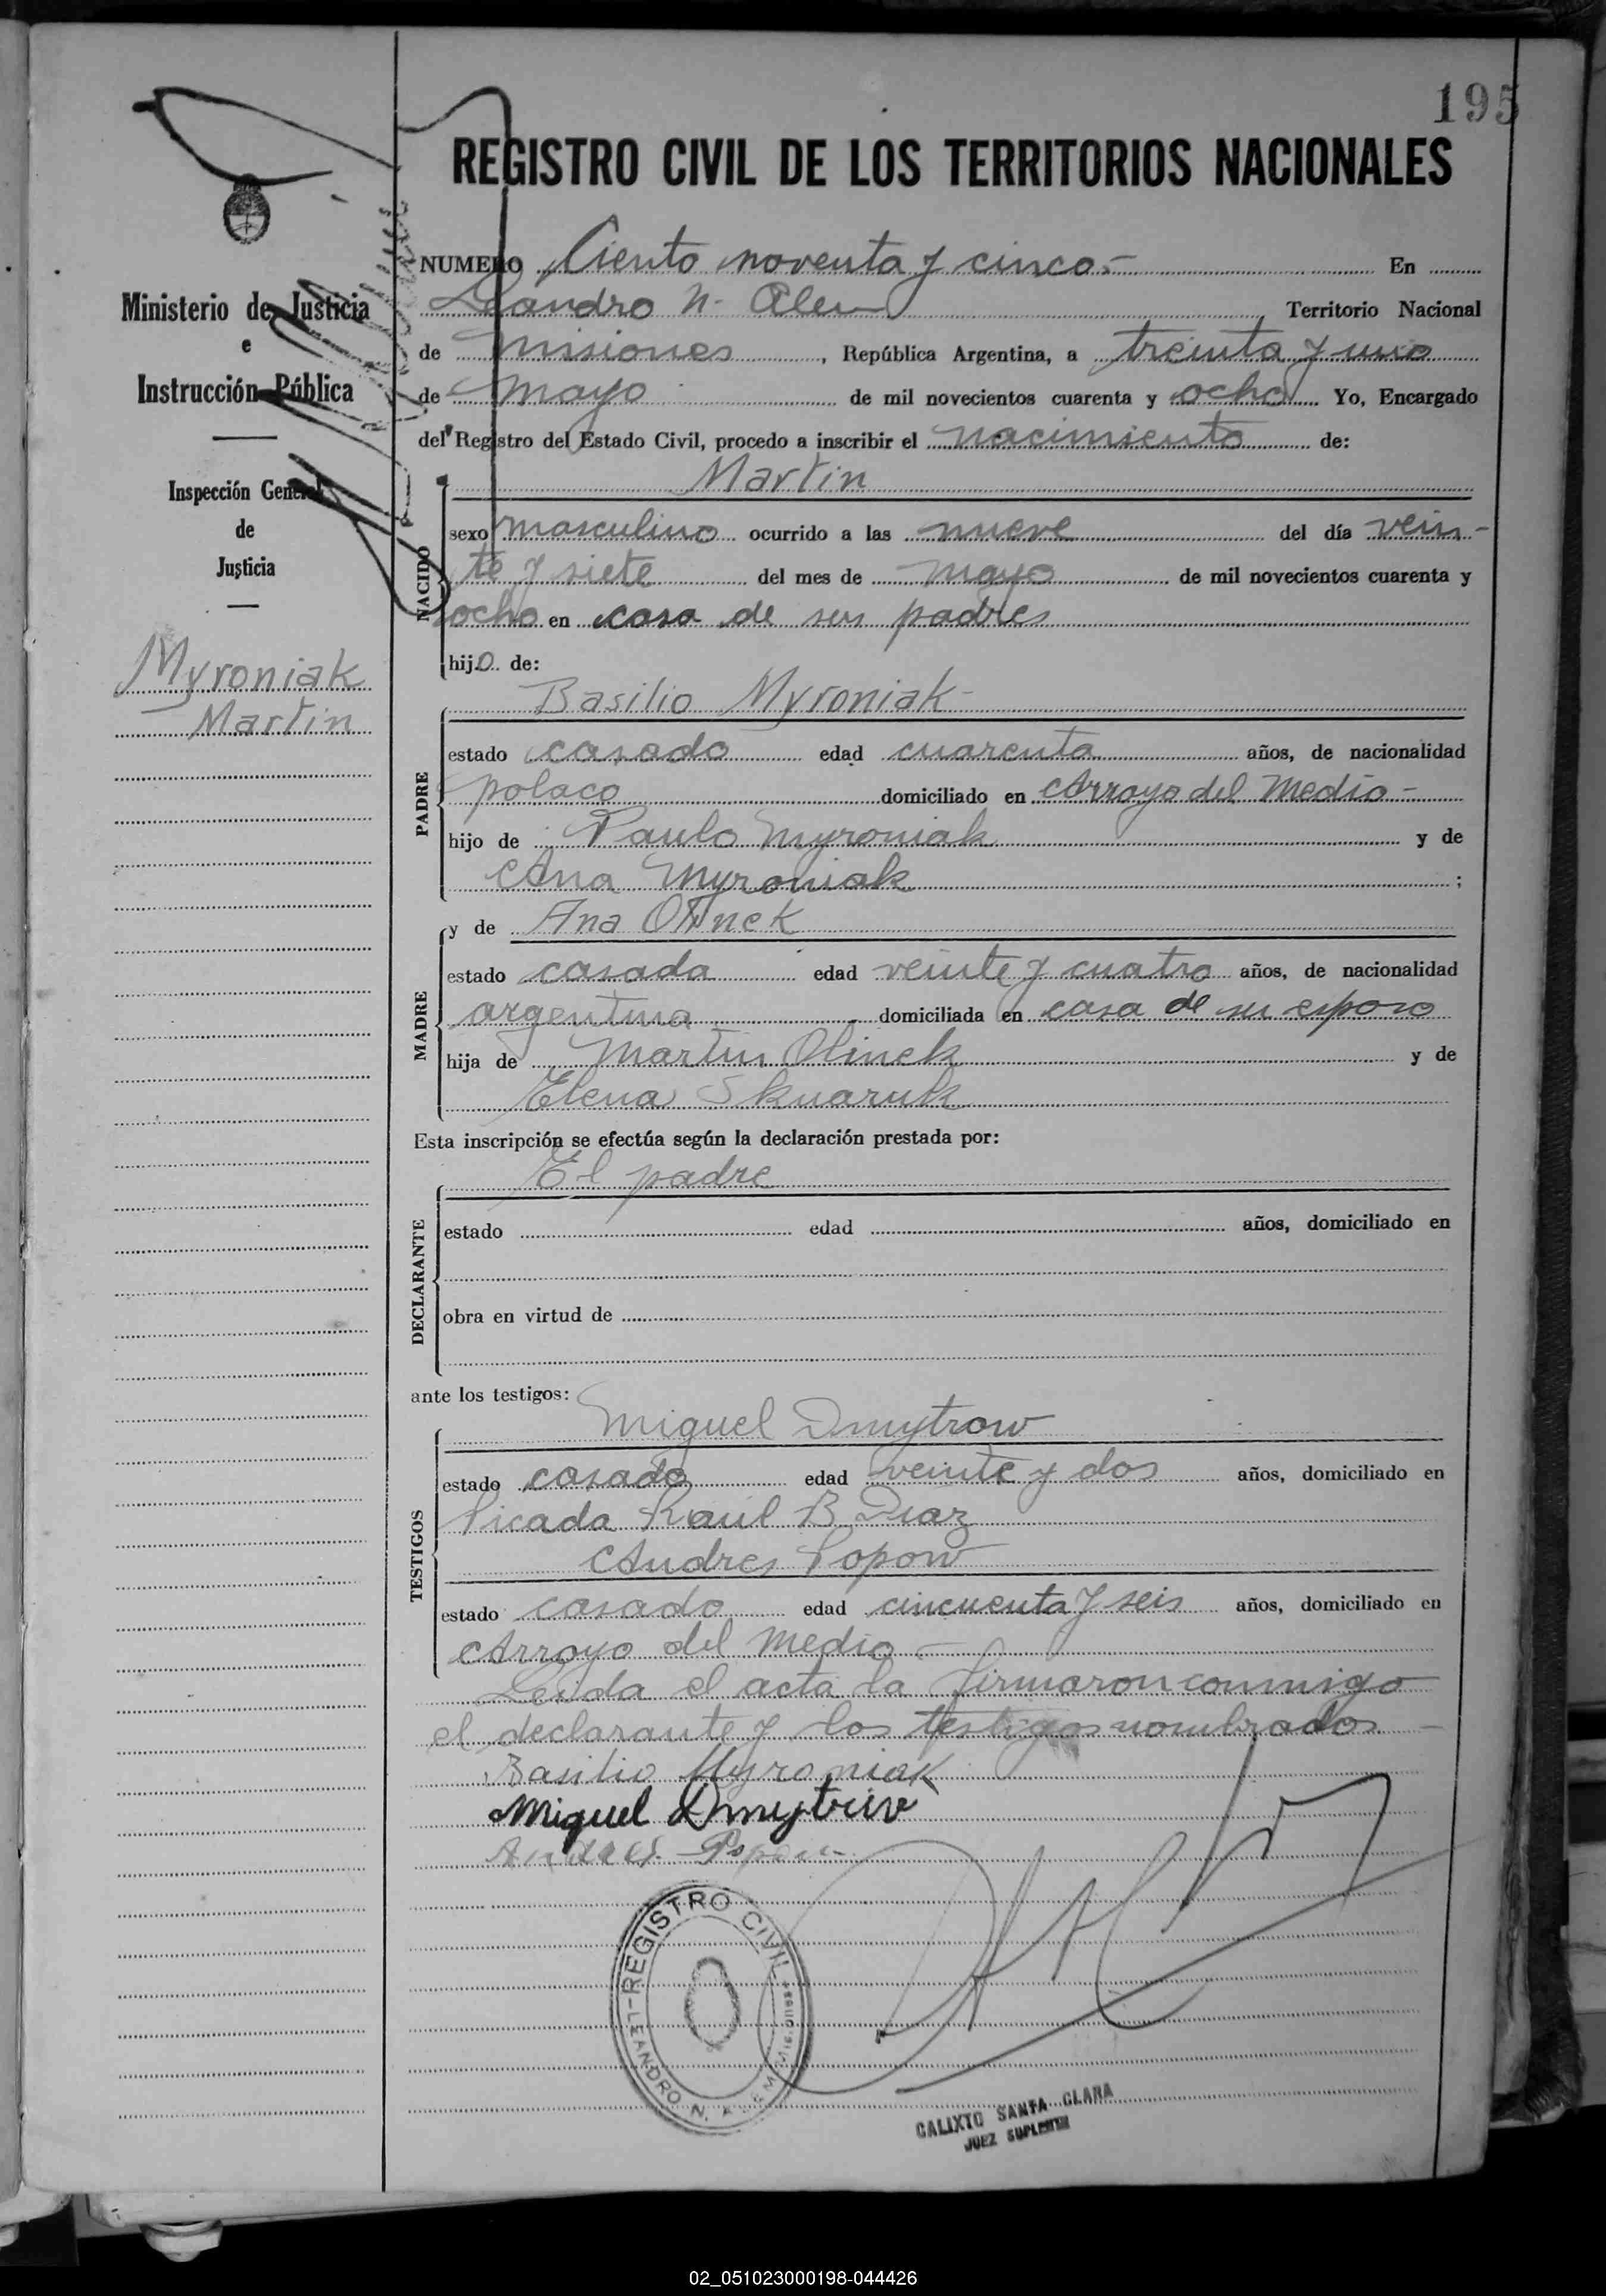 195
REGISTRO CIVIL DE LOS TERRITORIOS NACIONALES
Ministerio de Justicia
e
Instrucción Pública
Inspección General
de
Justicia
Myroniak
Martin
NUMERO Ciento noventa y cinco.- En
Leandro N. Alem Territorio Nacional
de Misiones, República Argentina, a treinta y uno
de mayo de mil novecientos cuarenta y ocho Yo, Encargado
del Registro del Estado Civil, procedo a inscribir el nacimiento de:
Martin
NACIDO
sexo masculino ocurrido a las nueve del día vein-
te y siete del mes de mayo de mil novecientos cuarenta y
ocho en casa de sus padres
hijo de:
Basilio Myroniak-
PADRE
estado casado edad cuarenta años, de nacionalidad
polaco domiciliado en Arroyo del Medio-
hijo de Paulo Myroniak y de
Ana Myroniak ;
y de Ana Olinek
MADRE
estado casada edad veinte y cuatro años, de nacionalidad
argentina domiciliada en casa de su esposo
hija de Martin Olinek y de
Elena Skuaruk
Esta inscripción se efectúa según la declaración prestada por:
El padre
DECLARANTE
estado edad años, domiciliado en
obra en virtud de
ante los testigos:
Miguel Dmytrow
TESTIGOS
estado casado edad veinte y dos años, domiciliado en
Picada Raúl B. Diaz
Andres Popow
estado casado edad cincuenta y seis años, domiciliado en
Arroyo del Medio-
Leida el acta la firmaron conmigo
el declarante y los testigos nombrados-
Basilio Myroniak
Miguel Dmytriw
Andres Popow
REGISTRO CIVIL
LEANDRO N. ALEM
CALIXTO SANTA CLARA
JUEZ SUPLENTE
02_051023000198-044426